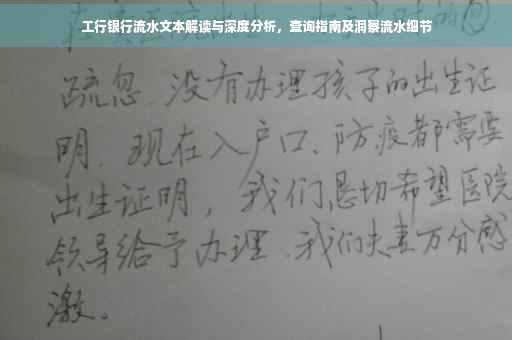 工行银行流水文本解读与深度分析，查询指南及洞察流水细节
疏忽、没有办理孩子的出生证
明、现在入户口、防疫都需要
出生证明，我们恳切希望医院
领导给予办理、我们夫妻万分感
激。